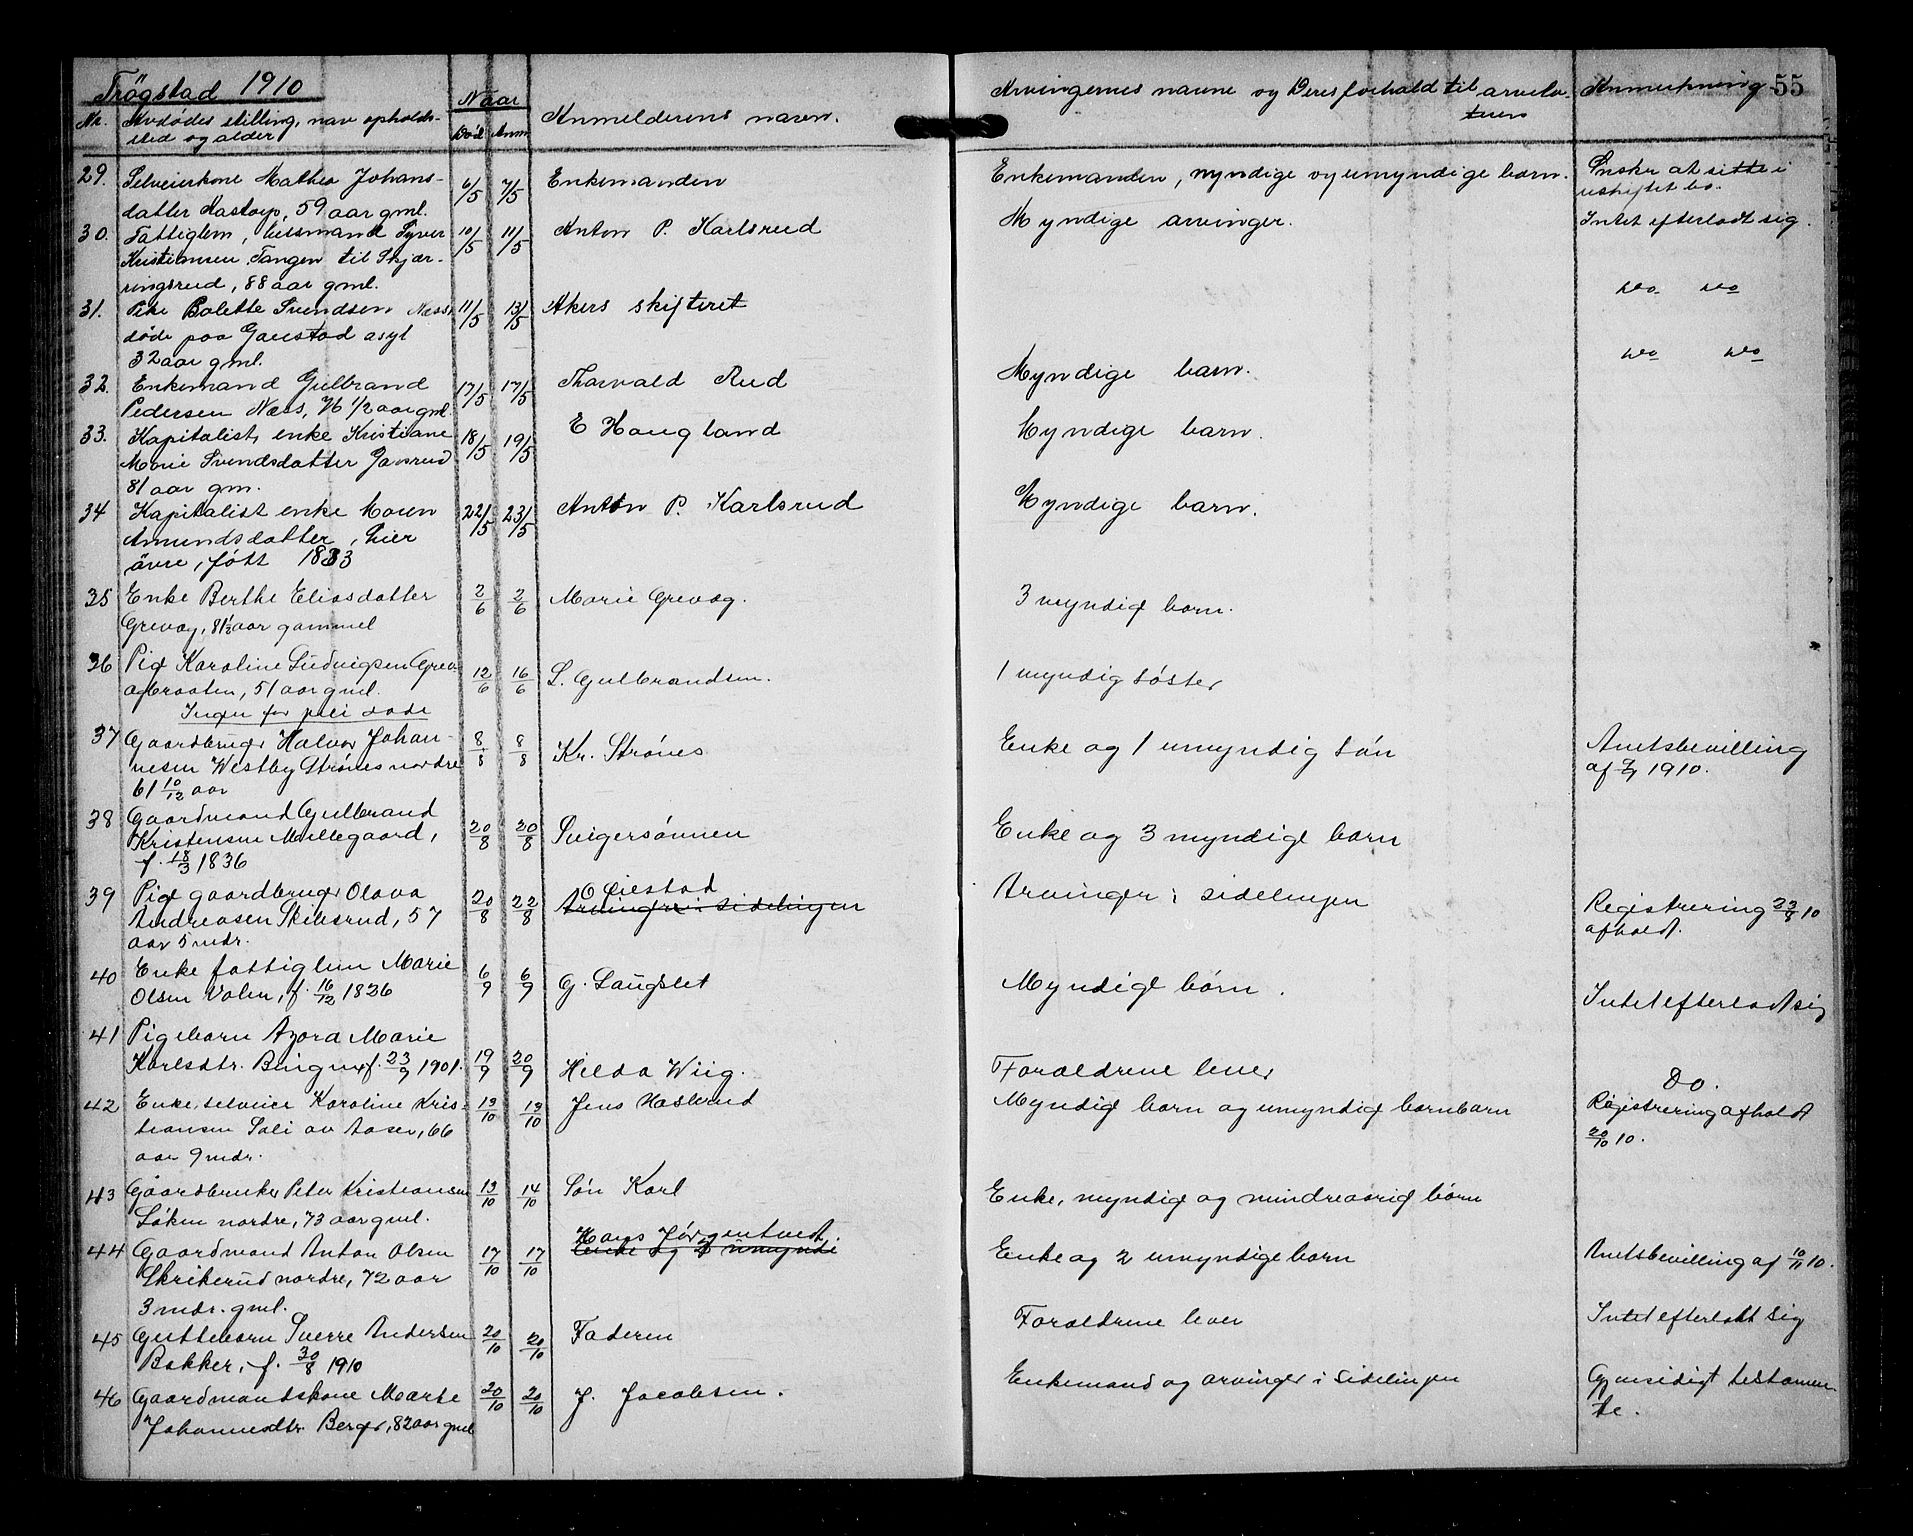 Trögstad 1910
Naar
Nr. Avdødes stilling, navn opholds-
sted og alder
Død Anm
Anmelderens navn.
Arvingernes navne og Deres forhold til arvela-
teren
Anmerkning
55
29. Selveierkone Mathea Johans-
datter Aastorp, 59 aar gml.
6/5 7/5 Enkemanden
Enkemanden, myndige og umyndige barn.
Ønsker at sitte i
uskiftet bo.
30. Fattiglem, husmand Syver
Kristiansen Tangen til Skjær-
ringsrud, 88 aar gml.
10/5 11/5 Anton P. Karlsrud
Myndige arvinger.
Intet efterladt sig.
31. Pike Bolette Svendsen Ness
døde paa Gaustad asyl
32 aar gml.
11/5 13/5 Akers skifteret
do do
32. Enkemand Gulbrand
Pedersen Næss, 76 1/2 aar gml.
17/5 17/5 Thorvald Rud
Myndige barn.
do do
33. Kapitalist, enke Kristiane
Marie Svendsdatter Jansrud
81 aar gm.
18/5 19/5 E Haugland
Myndige barn.
34 Kapitalist enke Maren
Amundsdatter, Lier
övre, fött 1833
22/5 23/5 Anton P. Karlsrud
Myndige barn.
35 Enke Berthe Eliasdatter
Grevag, 81 1/2 aar gammel
2/6 2/6 Marie Grevag.
3 myndige barn.
36 Pige Karoline Ludvigsen Grev
agbraaten, 51 aar gml.
12/6 16/6 L. Gulbrandsen.
1 myndig søster
Ingen for juli døde
37 Gaardbruger Halvor Johan-
nesen Westby Strønes nordre
61 10/12 aar
8/8 8/8 Kr. Strønes
Enke og 1 umyndig søn
Amtsbevilling
af 2/9 1910.
38 Gaardmand Gulbrand
Kristensen Møllegaard,
f. 18/3 1836
20/8 20/8 Svigersønnen
Enke og 3 myndige barn
39 Pige gaardbruger Olava
Andreasen Skibsrud, 57
aar 5 mdr.
20/8 22/8 O Øiestad
Arvinger i sidelinjen
Arvinger i sidelinjen
Registrering 23/8 10
afholdt.
40 Enke fattiglem Marie
Olsen Volen, f. 16/12 1826
6/9 6/9 G. Laugslet
Myndige børn.
Intet efterladt sig
41 Pigebarn Azora Marie
Karlsdtr. Bingen f. 23/9 1901.
19/9 20/9 Hilda Wiig.
Forældrene lever
Do.
42 Enke, selveier Karoline Kris-
tiansen Sali av Aasen, 66
aar 9 mdr.
13/10 13/10 Jens Haslerud
Myndige barn og umyndige barnbarn
Registrering afholdt
20/10 10.
43 Gaardbruker Peter Kristiansen
Løken nordre, 73 aar gml.
13/10 14/10 Søn Karl
Enke, myndige og mindreaarige børn
44 Gaardmand Anton Olsen
Skrikerud nordre, 72 aar
3 mdr. gml.
17/10 17/10 Hans Jørgentvedt
Enke og 2 umyndi
Enke og 2 umyndige barn
Amtsbevilling af 10/11 10.
45 Guttebarn Sverre Andersen
Bakker, f. 30/8 1910
20/10 20/10 Faderen
Forældrene lever
Intet efterlatt sig
46 Gaardmandskone Marte
Johannesdtr. Berger, 82 aar gml
20/10 20/10 J. Jacobsen.
Enkemand og arvinger i sidelinjen
Gjensidigt testamen-
te.